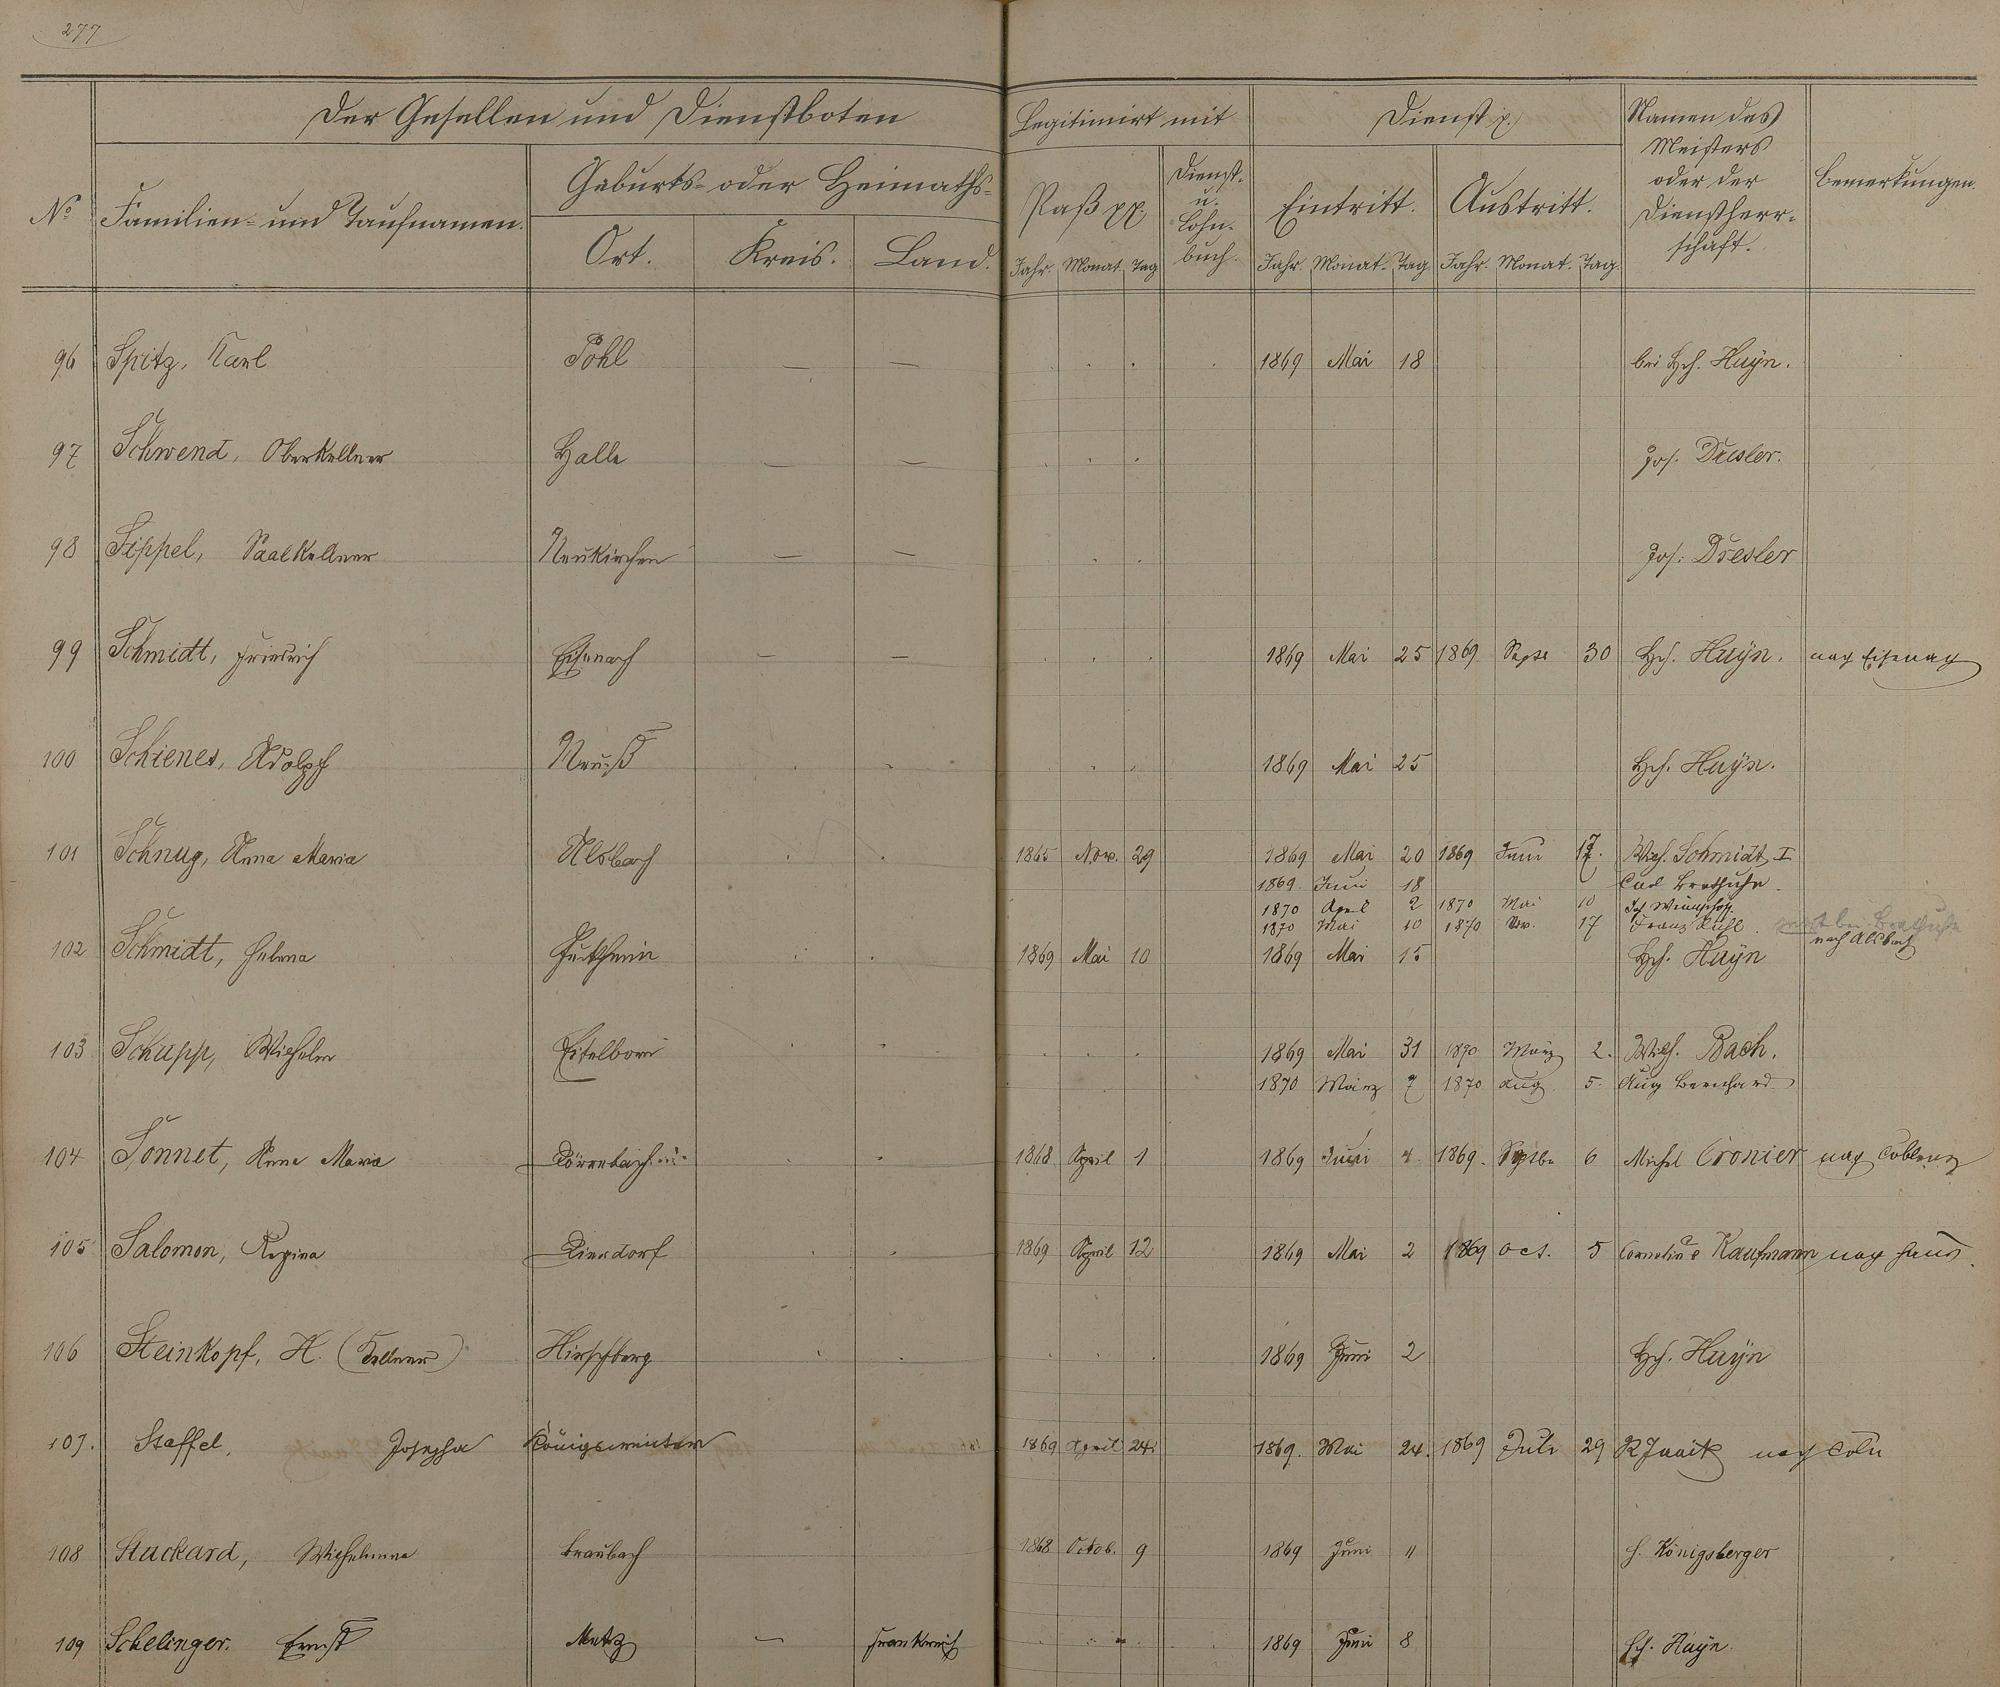 277
Der Gesellen und Dienstboten
Legitimirt mit
Dienst p.
Namen des Meisters oder der Dienstherrschaft.
Bemerkungen.
No
Familien- und Taufnamen.
Geburts- oder Heimaths-
Ort. Kreis. Land.
Paß pp.
Dienst- u. Lohn- buch.
Eintritt. Austritt.
Jahr. Monat. Tag Jahr. Monat. Tag Jahr. Monat. Tag.
96 Spitz, Karl Pohl — — 1869 Mai 18 bei Hch. Huyn.
97 Schwend, Oberkellner Halle — — Jos. Dresler.
98 Sippel, Saalkellner Neukirchen — — Jos. Dresler
99 Schmidt, Friedrich Eisenach — — 1869 Mai 25 1869 Septe 30 Hch. Huyn. nach Eisenach
100 Schienes, Adolph Neuß 1869 Mai 25 Hch. Huyn.
101 Schnug, Anna Maria Alsbach 1865 Nov. 29 1869 Mai 20 1869 Juni 17. Wilh. Schmidt I
1869 Juni 18 Carl Brathuhn.
1870 April 2 1870 Mai 10
1870 Mai 10 1870 Nov. 17 Franz Ruhl. nach Alsbach
102 Schmidt, Helena 1869 Mai 10 1869 Mai 15 Hch. Huyn
103 Schupp, Wilhelm Eitelborn 1869 Mai 31 1870 März 2. Wilh. Bach.
1870 März 7 1870 Aug 5. Aug Bernhard
104 Sonnet, Anna Maria 1868 April 1 1869 Juni 4 1869. Septbr 6 Michel Cronier nach Coblenz
105 Salomon, Regina Dierdorf 1869 April 12 1869 Mai 2 1869 Oct. 5 Cornelius Kaufmann nach Haus.
106 Steinkopf, H. (Kellner) Hirschberg 1869 Juni 2 Hch. Huyn
107. Staffel, Josepha Königswinter 1869 April 24 1869. Mai 24. 1869 Juli 29 nach Cöln
108 Stuckard, Wilhelmina Braubach 1868 Octob. 9 1869 Juni 4 H. Königsberger
109 Schelinger. Ernst Metz — Frankreich 1869 Juni 8 Hch. Huyn.